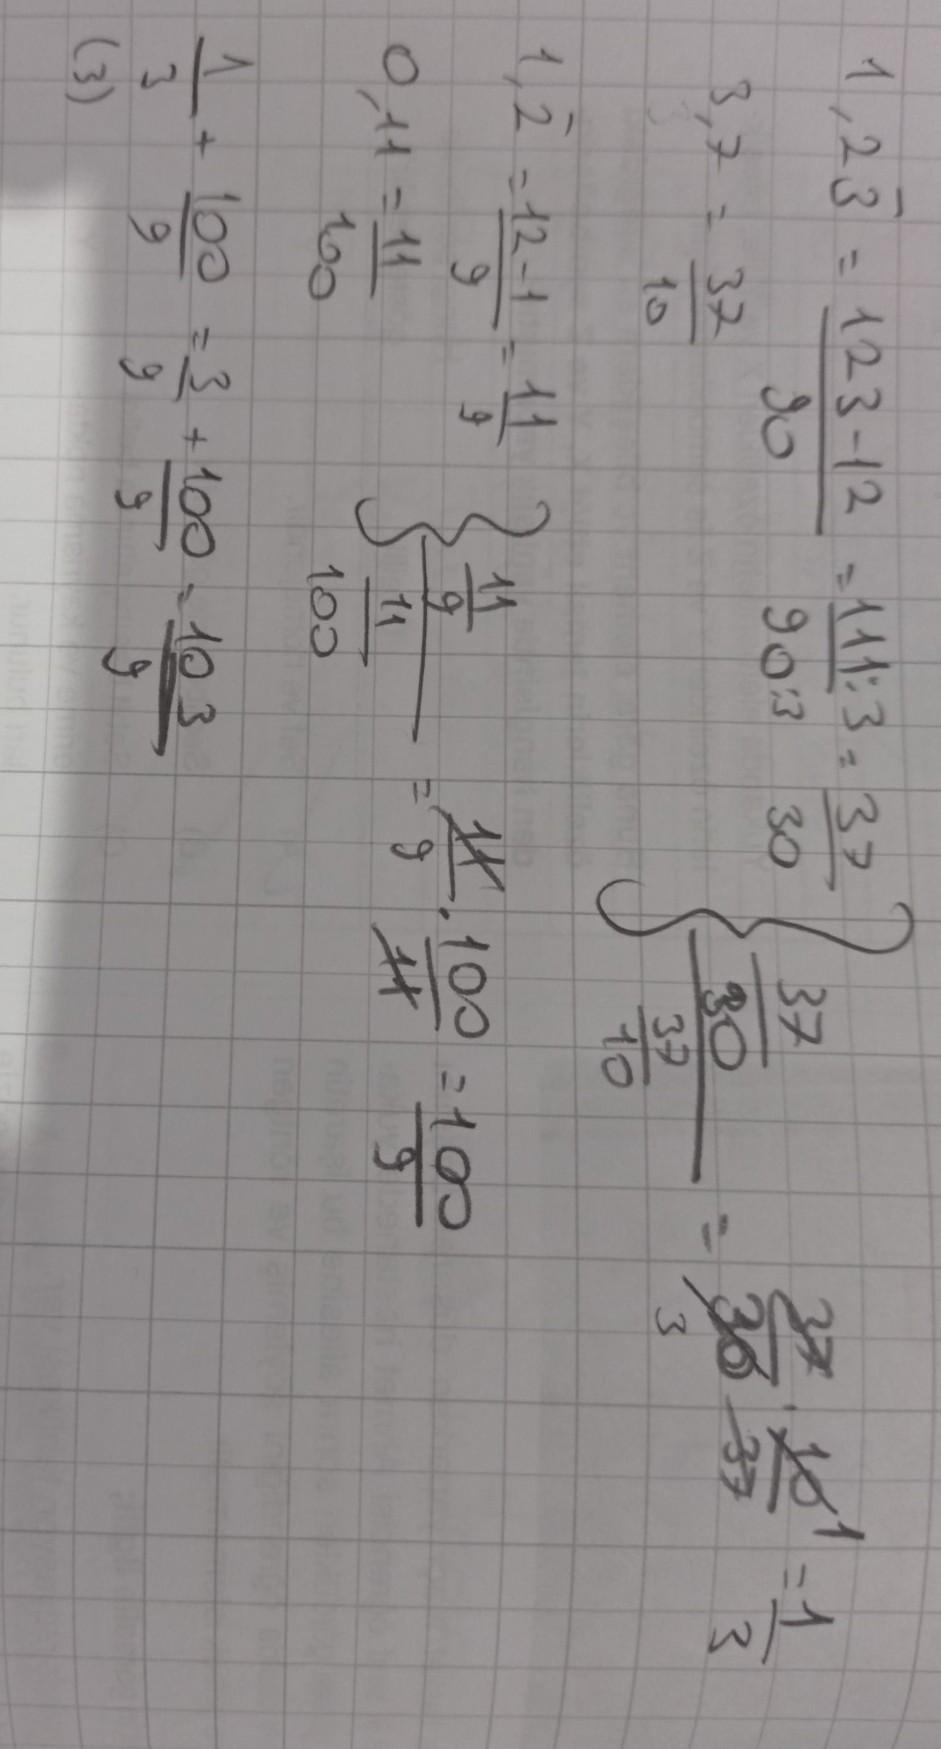 1,23̅ = 123-12/90 = 111:3/90:3 = 37/30
3,7 = 37/10
} 37/30 / 37/10 = 37/30 · 10/37 = 1/3
3
1
1,2̅ = 12-1/9 = 11/9
0,11 = 11/100
} 11/9 / 11/100 = 11/9 · 100/11 = 100/9
1/3 + 100/9 = 3/9 + 100/9 = 103/9
(3)